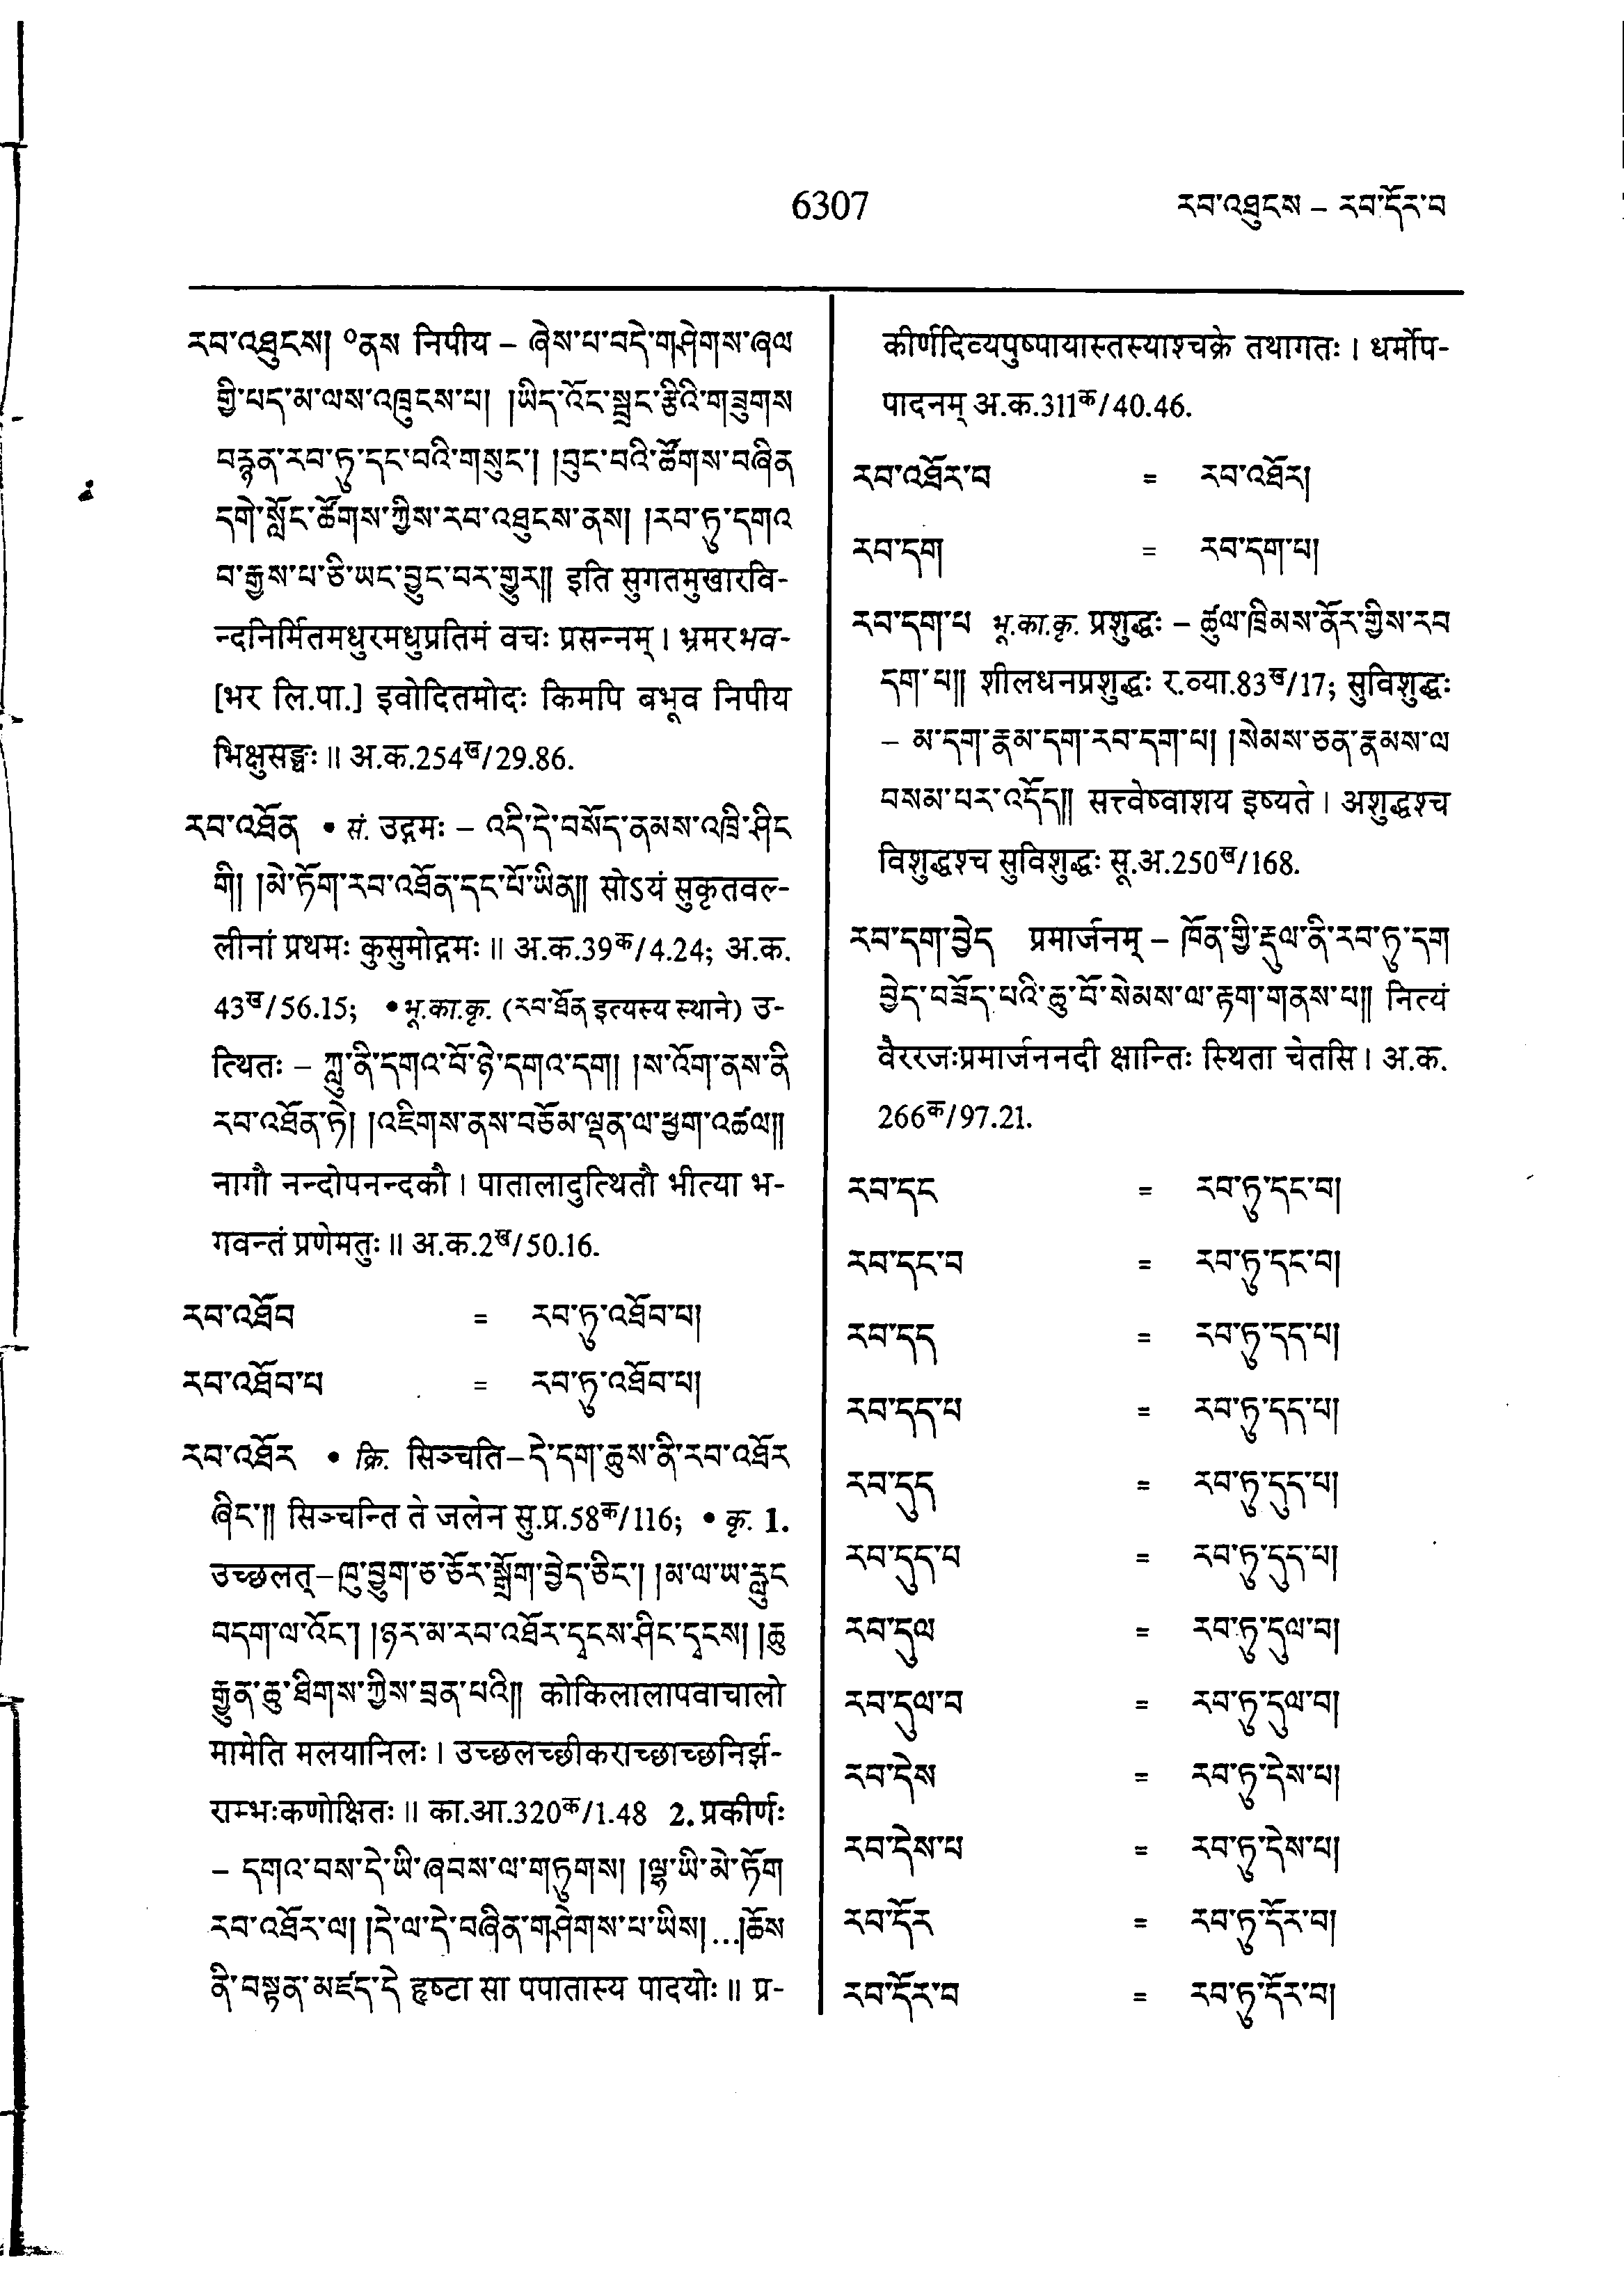 6307
རབ་འཐུངས – རབ་དོར་བ
རབ་འཐུངས། ༠ནས निपीय – ཞེས་པ་བདེ་གཤེགས་ཞལ
གྱི་པད་མ་ལས་འཁྲུངས་པ། །ཡིད་འོང་སྦྲང་རྩིའི་གཟུགས
བརྙན་རབ་ཏུ་དང་བའི་གསུང་། །བུང་བའི་ཚོགས་བཞིན
དགེ་སློང་ཚོགས་ཀྱིས་རབ་འཐུངས་ནས། །རབ་ཏུ་དགའ
བ་རྒྱས་པ་ཅི་ཡང་བྱུང་བར་གྱུར།། इति सुगतमुखारवि-
न्दनिर्मितमधुरमधुप्रतिमं वचः प्रसन्नम् । भ्रमरभव-
[भर लि.पा.] इवोदितमोदः किमपि बभूव निपीय
भिक्षुसङ्घः ॥ अ.क.254ख/29.86.
རབ་འཐོན • सं. उद्गमः – འདི་དེ་བསོད་ནམས་འཁྲི་ཤིང
གི། །མེ་ཏོག་རབ་འཐོན་དང་པོ་ཡིན།། सोऽयं सुकृतवल्-
लीनां प्रथमः कुसुमोद्गमः ॥ अ.क.39क/4.24; अ.क.
43ख/56.15; • भू.का.कृ. (རབ་ཐོན इत्यस्य स्थाने) उ-
त्थितः – ཀླུ་ནི་དགའ་བོ་ཉེ་དགའ་དག། །ས་འོག་ནས་ནི
རབ་འཐོན་ཏེ། །འཇིགས་ནས་བཅོམ་ལྡན་ལ་ཕྱག་འཚལ།།
नागौ नन्दोपनन्दकौ । पातालादुत्थितौ भीत्या भ-
गवन्तं प्रणेमतुः ॥ अ.क.2ख/50.16.
རབ་འཐོབ = རབ་ཏུ་འཐོབ་པ།
རབ་འཐོབ་པ = རབ་ཏུ་འཐོབ་པ།
རབ་འཐོར • क्रि. सिञ्चति–དེ་དག་ཆུས་ནི་རབ་འཐོར
ཞིང་།། सिञ्चन्ति ते जलेन सु.प्र.58क/116; • कृ. 1.
उच्छलत्–ཁུ་བྱུག་ཅ་ཅོར་སྒྲོག་བྱེད་ཅིང་། །མ་ལ་ཡ་རླུང
བདག་ལ་འོང་། །ཉར་མ་རབ་འཐོར་དྭངས་ཤིང་དྭངས། །ཆུ
རྒྱུན་ཆུ་ཐིགས་ཀྱིས་བྲན་པའི།། कोकिलालापवाचालो
मामेति मलयानिलः । उच्छलच्छीकराच्छाच्छनिर्झ-
राम्भःकणोक्षितः ॥ का.आ.320क/1.48 2. प्रकीर्णः
– དགའ་བས་དེ་ཡི་ཞབས་ལ་གཏུགས། །ལྷ་ཡི་མེ་ཏོག
རབ་འཐོར་ལ། །དེ་ལ་དེ་བཞིན་གཤེགས་པ་ཡིས། ...།ཆོས
ནི་བསྟན་མཛད་དེ हृष्टा सा पपातास्य पादयोः ॥ प्र-
कीर्णदिव्यपुष्पायास्तस्याश्चक्रे तथागतः । धर्मोप-
पादनम् अ.क.311क/40.46.
རབ་འཐོར་བ = རབ་འཐོར།
རབ་དག = རབ་དག་པ།
རབ་དག་པ भू.का.कृ. प्रशुद्धः – ཚུལ་ཁྲིམས་ནོར་གྱིས་རབ
དག་པ།། शीलधनप्रशुद्धः र.व्या.83ख/17; सुविशुद्धः
– མ་དག་རྣམ་དག་རབ་དག་པ། །སེམས་ཅན་རྣམས་ལ
བསམ་པར་འདོད།། सत्त्वेष्वाशय इष्यते । अशुद्धश्च
विशुद्धश्च सुविशुद्धः सू.अ.250ख/168.
རབ་དག་བྱེད प्रमार्जनम् – ཁོན་གྱི་རྡུལ་ནི་རབ་ཏུ་དག
བྱེད་བཟོད་པའི་ཆུ་བོ་སེམས་ལ་རྟག་གནས་པ།། नित्यं
वैररजःप्रमार्जननदी क्षान्तिः स्थिता चेतसि । अ.क.
266क/97.21.
རབ་དང = རབ་ཏུ་དང་བ།
རབ་དང་བ = རབ་ཏུ་དང་བ།
རབ་དད = རབ་ཏུ་དད་པ།
རབ་དད་པ = རབ་ཏུ་དད་པ།
རབ་དུད = རབ་ཏུ་དུད་པ།
རབ་དུད་པ = རབ་ཏུ་དུད་པ།
རབ་དུལ = རབ་ཏུ་དུལ་བ།
རབ་དུལ་བ = རབ་ཏུ་དུལ་བ།
རབ་དེས = རབ་ཏུ་དེས་པ།
རབ་དེས་པ = རབ་ཏུ་དེས་པ།
རབ་དོར = རབ་ཏུ་དོར་བ།
རབ་དོར་བ = རབ་ཏུ་དོར་བ།